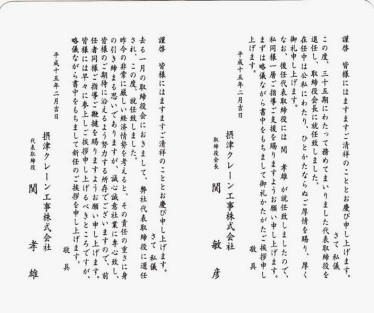 謹啓 皆様にはますますご清祥のこととお慶び申し上げます。
さて 私儀
この度、三十五期にわたって務めてまいりました代表取締役を
退任し、取締役会長に就任致しました。
在任中は公私にわたり、ひとかたならぬご厚情を賜り、厚く
御礼申し上げます。
なお、後任代表取締役には 関 孝雄 が就任致しましたので、
私同様一層ご指導ご支援を賜りますようお願い申し上げます。
まずは略儀ながら書中をもちまして御礼かたがたご挨拶申し
上げます。
敬具
平成十五年二月吉日
摂津クレーン工事株式会社
取締役会長 関 敏彦
謹啓 皆様にはますますご清祥のこととお慶び申し上げます。
さて 私儀
去る一月の取締役会におきまして、弊社代表取締役に選任
され、この度、就任致しました。
昨今の非常に厳しい経済情勢を考えると、その責任の重さに身
の引き締まる思いでありますが、誠心誠意社業に専心致し、
皆様のご期待に沿えるよう努力する所存でございますので、前
任者同様ご指導ご鞭撻を賜りますようお願い申し上げます。
皆様には早々に参上しご挨拶申し上げるべきところですが、
まずは略儀ながら書中をもちまして就任のご挨拶を申し上げます。
敬具
平成十五年二月吉日
摂津クレーン工事株式会社
代表取締役 関 孝雄